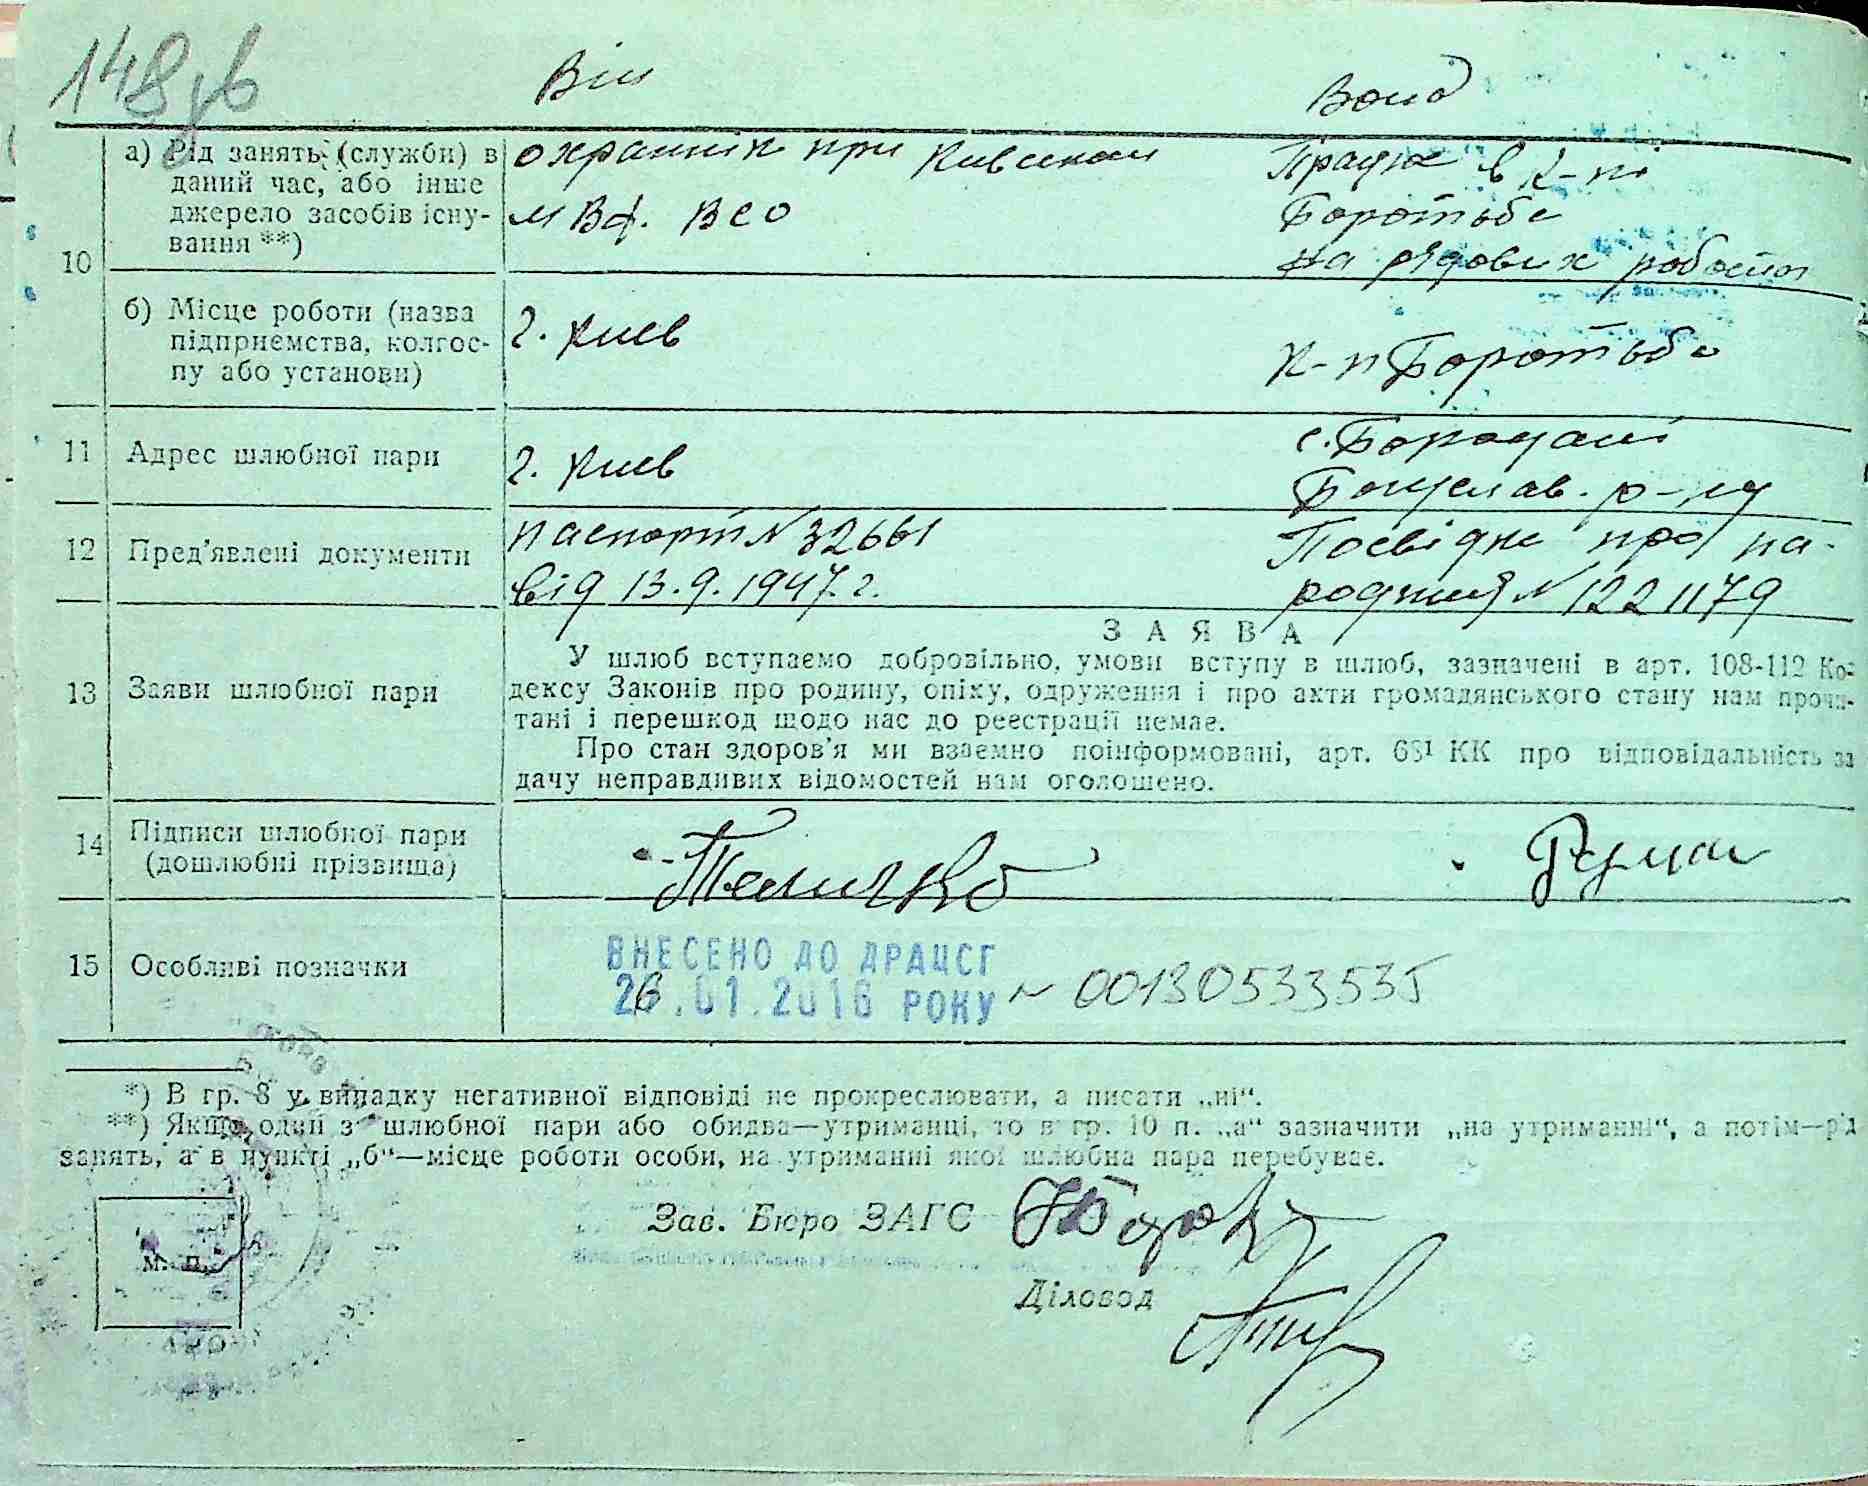 148
Він
Вона
10
а) Рід занять (служби) в даний час, або інше джерело засобів існу-вання **)
охранник при
М Вф. ВСО
Працює в к-пі
Боротьба
на рядових роботах
б) Місце роботи (назва підприємства, колгос-пу або установи)
г. Киев
к-п Боротьба
11
Адрес шлюбної пари
г. Киев
с. Бородані
Богуслав. р-ну
12
Пред'явлені документи
паспорт N 32661
від 13.9.1947.г.
Посвідка про на-
родження N 1221179
13
Заяви шлюбної пари
ЗАЯВА
У шлюб вступаємо добровільно, умови вступу в шлюб, зазначені в арт. 108-112 Ко-
дексу Законів про родину, опіку, одруження і про акти громадянського стану нам прочи-
тані і перешкод щодо нас до реєстрації немає.
Про стан здоров'я ми взаємно поінформовані, арт. 68¹ КК про відповідальність за
дачу неправдивих відомостей нам оголошено.
14
Підписи шлюбної пари
(дошлюбні прізвища)
15
Особливі позначки
ВНЕСЕНО ДО ДРАЦСГ
26.01.2016 РОКУ N 00130533535
*) В гр. 8 у випадку негативної відповіді не прокреслювати, а писати „ні“.
**) Якщо один з шлюбної пари або обидва—утриманці, то в гр. 10 п. „а“ зазначити „на утриманні“, а потім—рід
занять, а в пункті „б“—місце роботи особи, на утриманні якої шлюбна пара перебуває.
Зав. Бюро ЗАГС
М. П.
Діловод